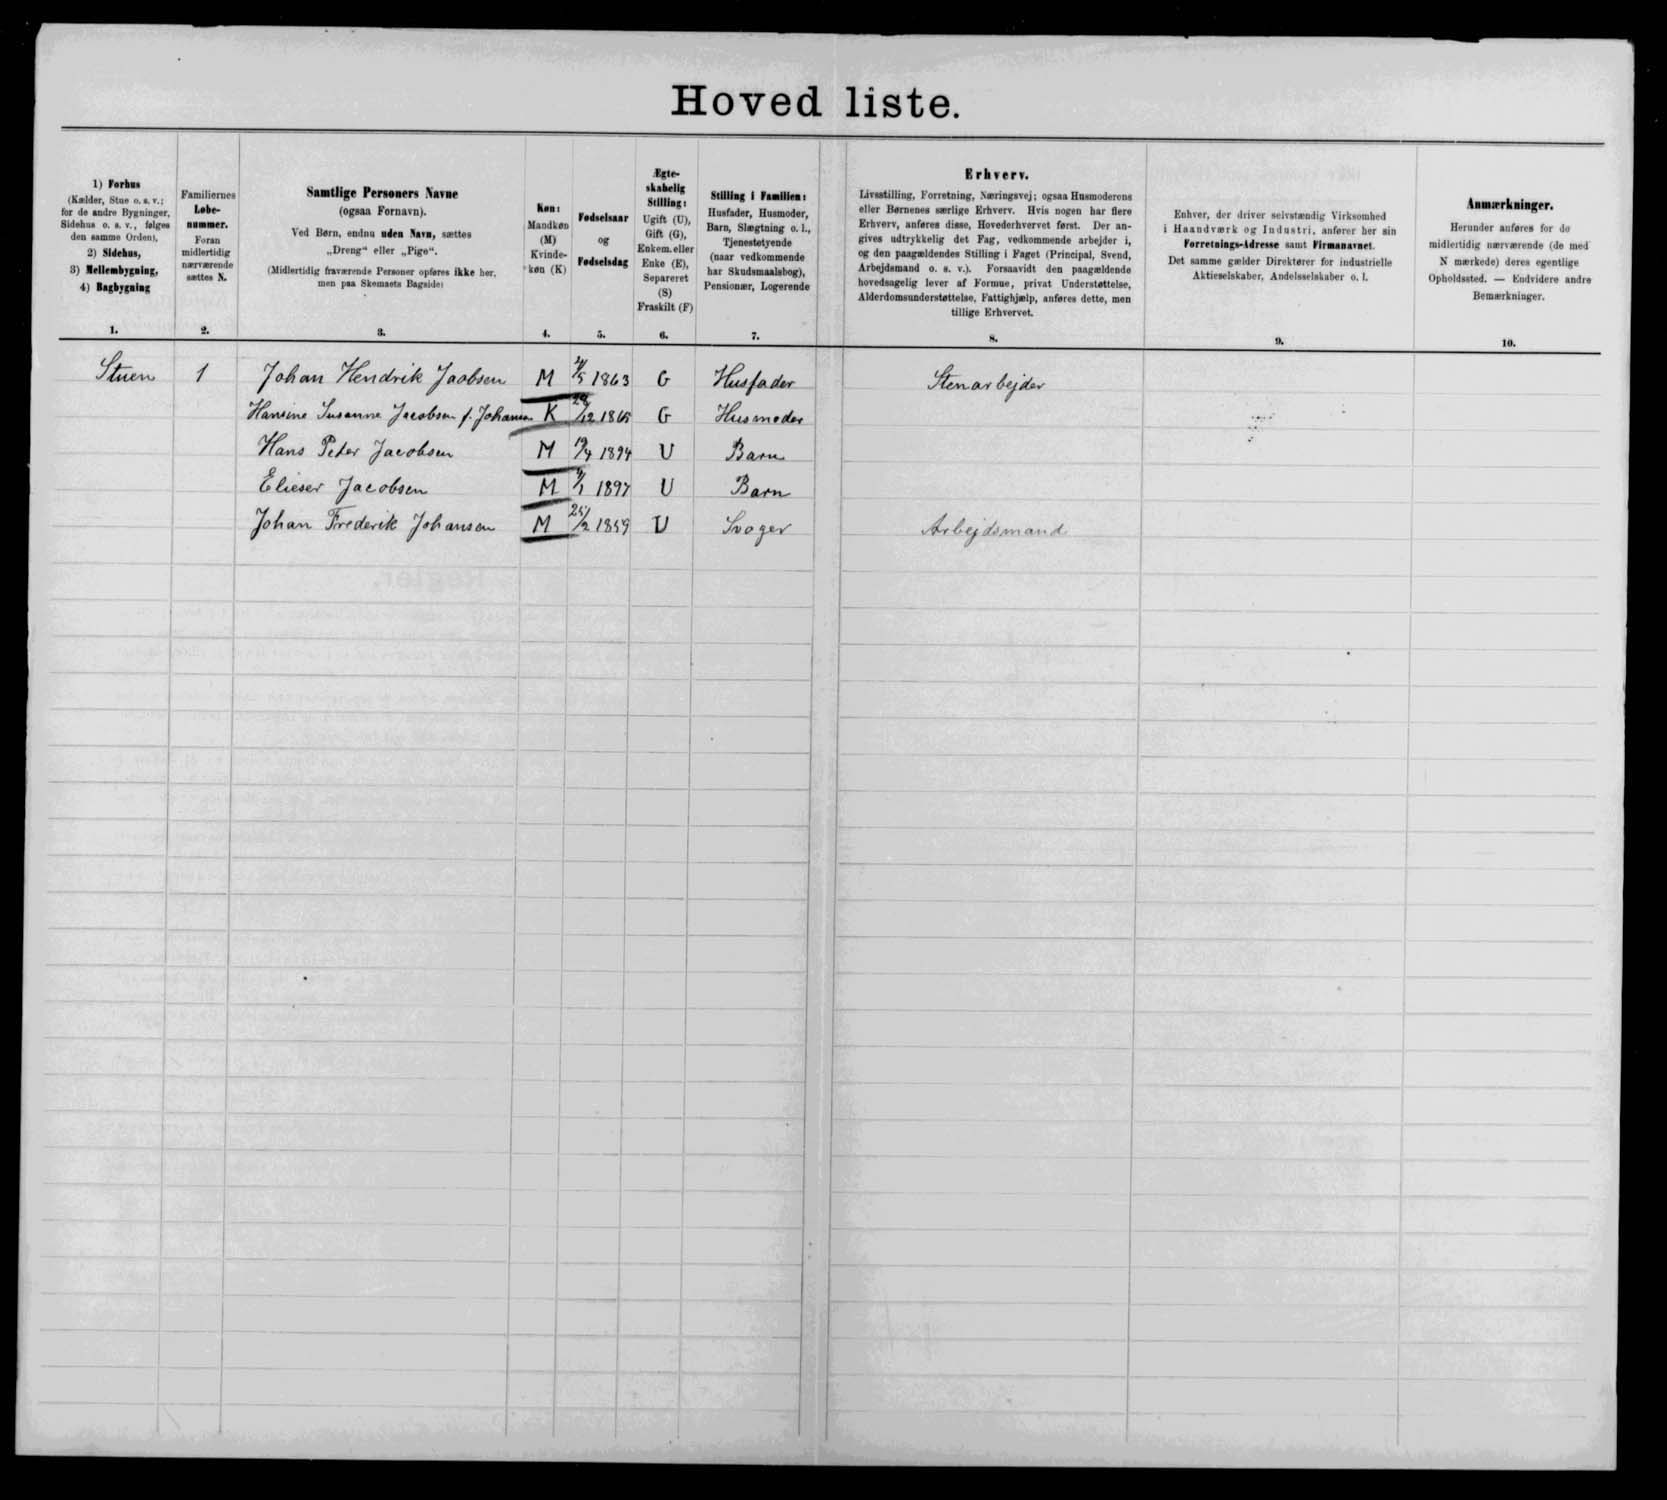 Hoved liste.
1) Forhus
(Kælder, Stue o. s. v.;
for de andre Bygninger,
Sidehus o. s. v., følges
den samme Orden),
2) Sidehus,
3) Mellembygning,
4) Bagbygning
1.
Familiernes
Løbe-
nummer.
Foran
midlertidig
nærværende
sættes N.
2.
Samtlige Personers Navne
(ogsaa Fornavn).
Ved Børn, endnu uden Navn, sættes
„Dreng“ eller „Pige“.
(Midlertidig fraværende Personer opføres ikke her,
men paa Skemaets Bagside)
3.
Køn:
Mandkøn
(M)
Kvinde-
køn (K)
4.
Fødselsaar
og
Fødselsdag
5.
Ægte-
skabelig
Stilling:
Ugift (U),
Gift (G),
Enkem. eller
Enke (E),
Separeret
(S)
Fraskilt (F)
6.
Stilling i Familien:
Husfader, Husmoder,
Barn, Slægtning o. l.,
Tjenestetyende
(naar vedkommende
har Skudsmaalsbog),
Pensionær, Logerende
7.
Erhverv.
Livsstilling, Forretning, Næringsvej; ogsaa Husmoderens
eller Børnenes særlige Erhverv. Hvis nogen har flere
Erhverv, anføres disse, Hovederhvervet først. Der an-
gives udtrykkelig det Fag, vedkommende arbejder i,
og den paagældendes Stilling i Faget (Principal, Svend,
Arbejdsmand o. s. v.). Forsaavidt den paagældende
hovedsagelig lever af Formue, privat Understøttelse,
Alderdomsunderstøttelse, Fattighjælp, anføres dette, men
tillige Erhvervet.
8.
Enhver, der driver selvstændig Virksomhed
i Haandværk og Industri, anfører her sin
Forretnings-Adresse samt Firmanavnet.
Det samme gælder Direktører for industrielle
Aktieselskaber, Andelsselskaber o. l.
9.
Anmærkninger.
Herunder anføres for de
midlertidig nærværende (de med
N mærkede) deres egentlige
Opholdssted. — Endvidere andre
Bemærkninger.
10.
Stuen 1 Johan Hendrik Jaobsen M /5 1863 G Husfader Stenarbejder
Hansine Susanne Jacobsen f. Johansen K 28/12 1865 G Husmoder
Hans Peter Jacobsen M 19/4 1894 U Barn
Elieser Jacobsen M /1 1897 U Barn
Johan Frederik Johansen M 25/2 1859 U Svoger Arbejdsmand